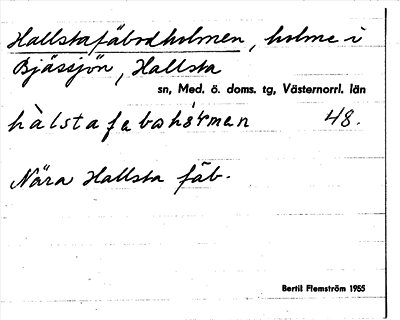 Hallstafäbodholmen, holme i
Bjässjön, Hallsta
sn, Med. ö. doms. tg, Västernorrl. län
hàlstafebohó̤rmen 48.
Nära Hallsta fäb.
Bertil Flemström 1955